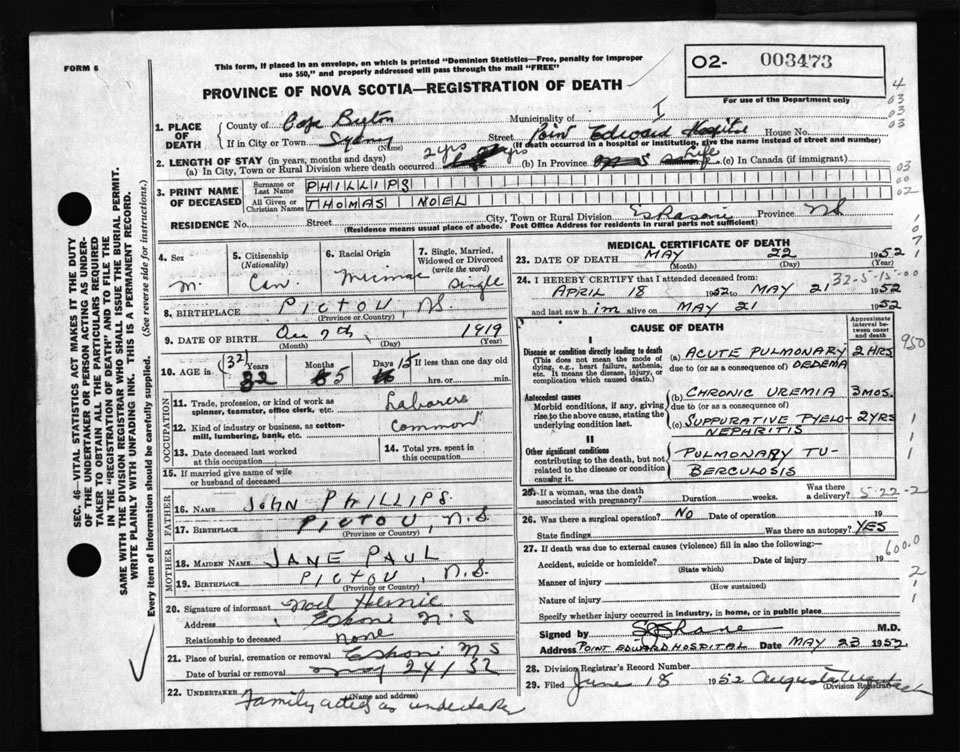 FORM 6
This form, if placed in an envelope, on which is printed "Dominion Statistics—Free, penalty for improper
use $50," and properly addressed will pass through the mail "FREE"
O2- 003473
For use of the Department only
PROVINCE OF NOVA SCOTIA—REGISTRATION OF DEATH
1. PLACE OF DEATH
County of Cape Breton
Municipality of
If in City or Town Sydney (Name) Street Point Edward Hospital House No.
(If death occurred in a hospital or institution, give the name instead of street and number)
2. LENGTH OF STAY (in years, months and days)
(a) In City, Town or Rural Division where death occurred 2 yrs (b) In Province Life (c) In Canada (if immigrant)
3. PRINT NAME OF DECEASED
Surname or Last Name PHILLIPS
All Given or Christian Names THOMAS NOEL
RESIDENCE No. Street City, Town or Rural Division Eskasoni Province NS
(Residence means usual place of abode. Post Office Address for residents in rural parts not sufficient)
4. Sex M.
5. Citizenship (Nationality) Can.
6. Racial Origin Micmac
7. Single, Married, Widowed or Divorced (write the word) Single
8. BIRTHPLACE PICTOU, NS. (Province or Country)
9. DATE OF BIRTH 7th 1919
(Month) (Day) (Year)
10. AGE in (32) Years 32 Months 5 15 If less than one day old
hrs. or min.
OCCUPATION
11. Trade, profession, or kind of work as spinner, teamster, office clerk, etc. Laborer
12. Kind of industry or business, as cotton-mill, lumbering, bank, etc. Common
13. Date deceased last worked at this occupation
14. Total yrs. spent in this occupation
15. If married give name of wife or husband of deceased
FATHER
16. NAME JOHN PHILLIPS.
17. BIRTHPLACE PICTOU, N.S.
(Province or Country)
MOTHER
18. MAIDEN NAME JANE PAUL
19. BIRTHPLACE PICTOU, N.S.
(Province or Country)
20. Signature of informant Noel
Address N.S
Relationship to deceased none
21. Place of burial, cremation or removal N S
Date of burial or removal May 24/52
22. UNDERTAKER Family acted as undertaker
(Name and address)
MEDICAL CERTIFICATE OF DEATH
23. DATE OF DEATH MAY 22 1952
(Month) (Day) (Year)
24. I HEREBY CERTIFY that I attended deceased from: 32-5-15-00
APRIL 18 1952 to MAY 21 1952
and last saw him alive on MAY 21 1952
CAUSE OF DEATH
Approximate interval between onset and death
I
Disease or condition directly leading to death
(This does not mean the mode of dying, e.g., heart failure, asthenia, etc. It means the disease, injury, or complication which caused death.)
(a) ACUTE PULMONARY 2 HRS
due to (or as a consequence of) OEDEMA
Antecedent causes
Morbid conditions, if any, giving rise to the above cause, stating the underlying condition last.
(b) CHRONIC UREMIA 3 MOS.
due to (or as a consequence of)
(c) SUPPURATIVE PYELO- 2 YRS
NEPHRITIS
II
Other significant conditions
contributing to the death, but not related to the disease or condition causing it.
PULMONARY TU-
BERCULOSIS
25. If a woman, was the death associated with pregnancy? Duration weeks. Was there a delivery? 5-22-2
26. Was there a surgical operation? NO Date of operation 19
State findings Was there an autopsy? YES
27. If death was due to external causes (violence) fill in also the following: 600.0
Accident, suicide or homicide? Date of injury 19
(State which)
Manner of injury
(How sustained)
Nature of injury
Specify whether injury occurred in industry, in home, or in public place
Signed by M.D.
Address POINT EDWARD HOSPITAL Date MAY 23 1952
28. Division Registrar's Record Number
29. Filed June 18 1952 Augusta
(Division Registrar)
SEC. 46—VITAL STATISTICS ACT MAKES IT THE DUTY
OF THE UNDERTAKER OR PERSON ACTING AS UNDER-
TAKER TO OBTAIN ALL THE PARTICULARS REQUIRED
IN THE "REGISTRATION OF DEATH" AND TO FILE THE
SAME WITH THE DIVISION REGISTRAR WHO SHALL ISSUE THE BURIAL PERMIT.
WRITE PLAINLY WITH UNFADING INK. THIS IS A PERMANENT RECORD.
Every item of information should be carefully supplied. (See reverse side for instructions.)
4
03
03
03
03
00
02
950